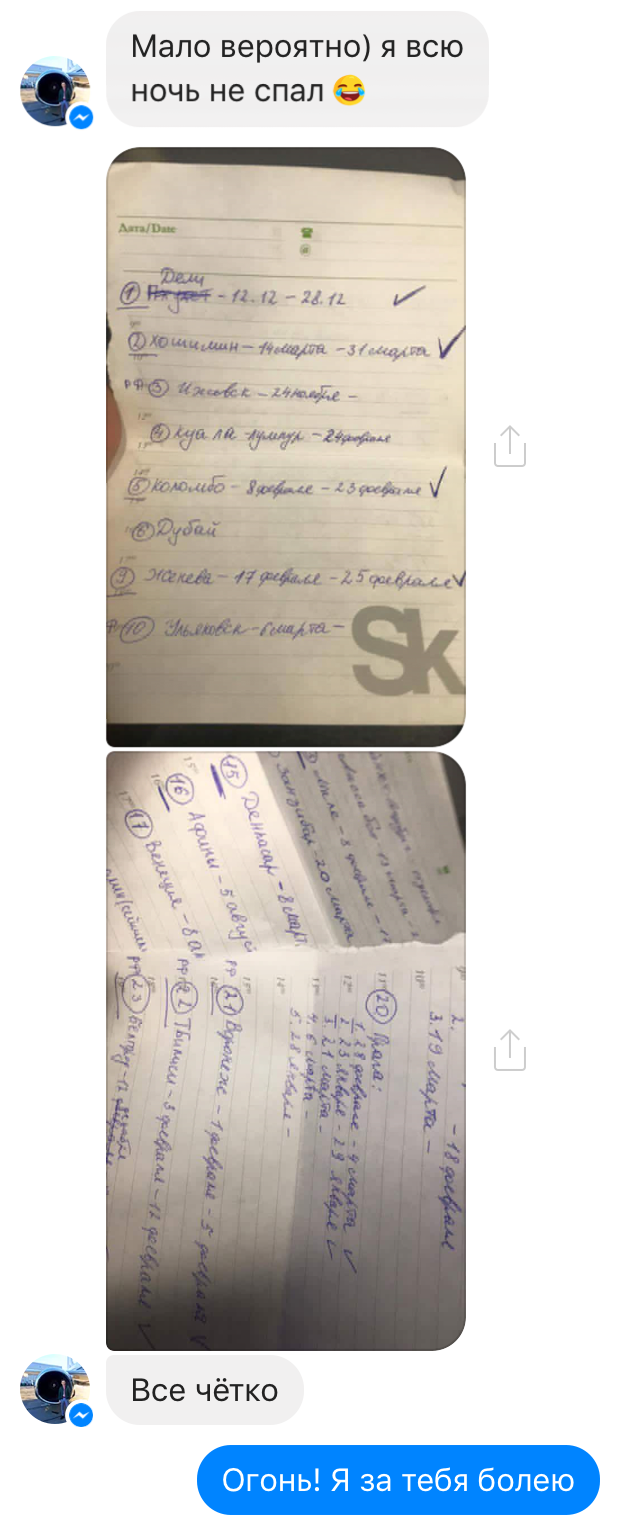 Мало вероятно) я всю
ночь не спал 😂
Дата/Date
Дели
① - 12.12 - 28.12 ✓
② Хошимин - 14 марта - 31 марта ✓
РФ ③ Ижевск - 24 ноября -
④ Куала-лумпур - 24 февраля
⑤ Коломбо - 8 февраля - 23 февраля ✓
⑥ Дубай
⑨ Женева - 17 февраля - 25 февраля ✓
⑩ Ульяновск - 6 марта -
Sk
⑮ Денпасар - 8 март
⑯ Афины - 5 август
⑰ Венеция - 8
Занзибар - 20 марта
Мале - 8 февраля - 17
2. - 18 февраля
3. 19 марта -
⑳ Прага:
1. 28 февраля - 4 марта ✓
2. 23 января - 29 января ✓
3. 21 марта -
4. 6 марта -
5. 28 января -
РФ ㉑ Воронеж - 1 февраля - 5 февраля ✓
РФ ㉒ Тбилиси - 3 февраля - 12 февраля ✓
РФ ㉓ Белград - 12
Все чётко
Огонь! Я за тебя болею